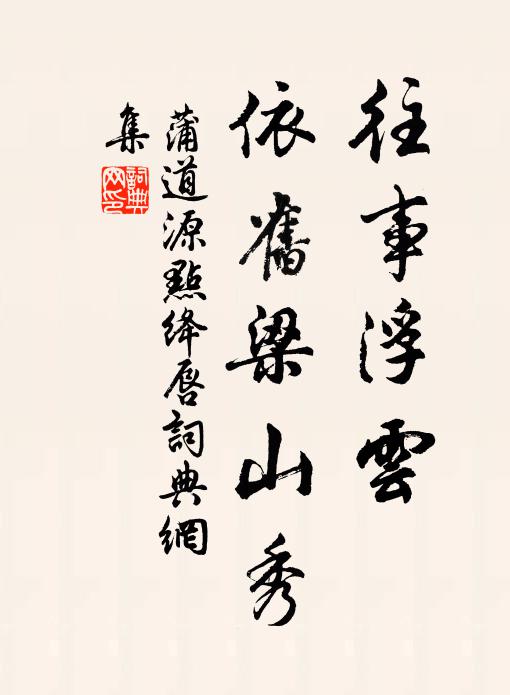 往事浮雲
依舊梁山秀
蒲道源點絳唇詞典網
集
詞典網印